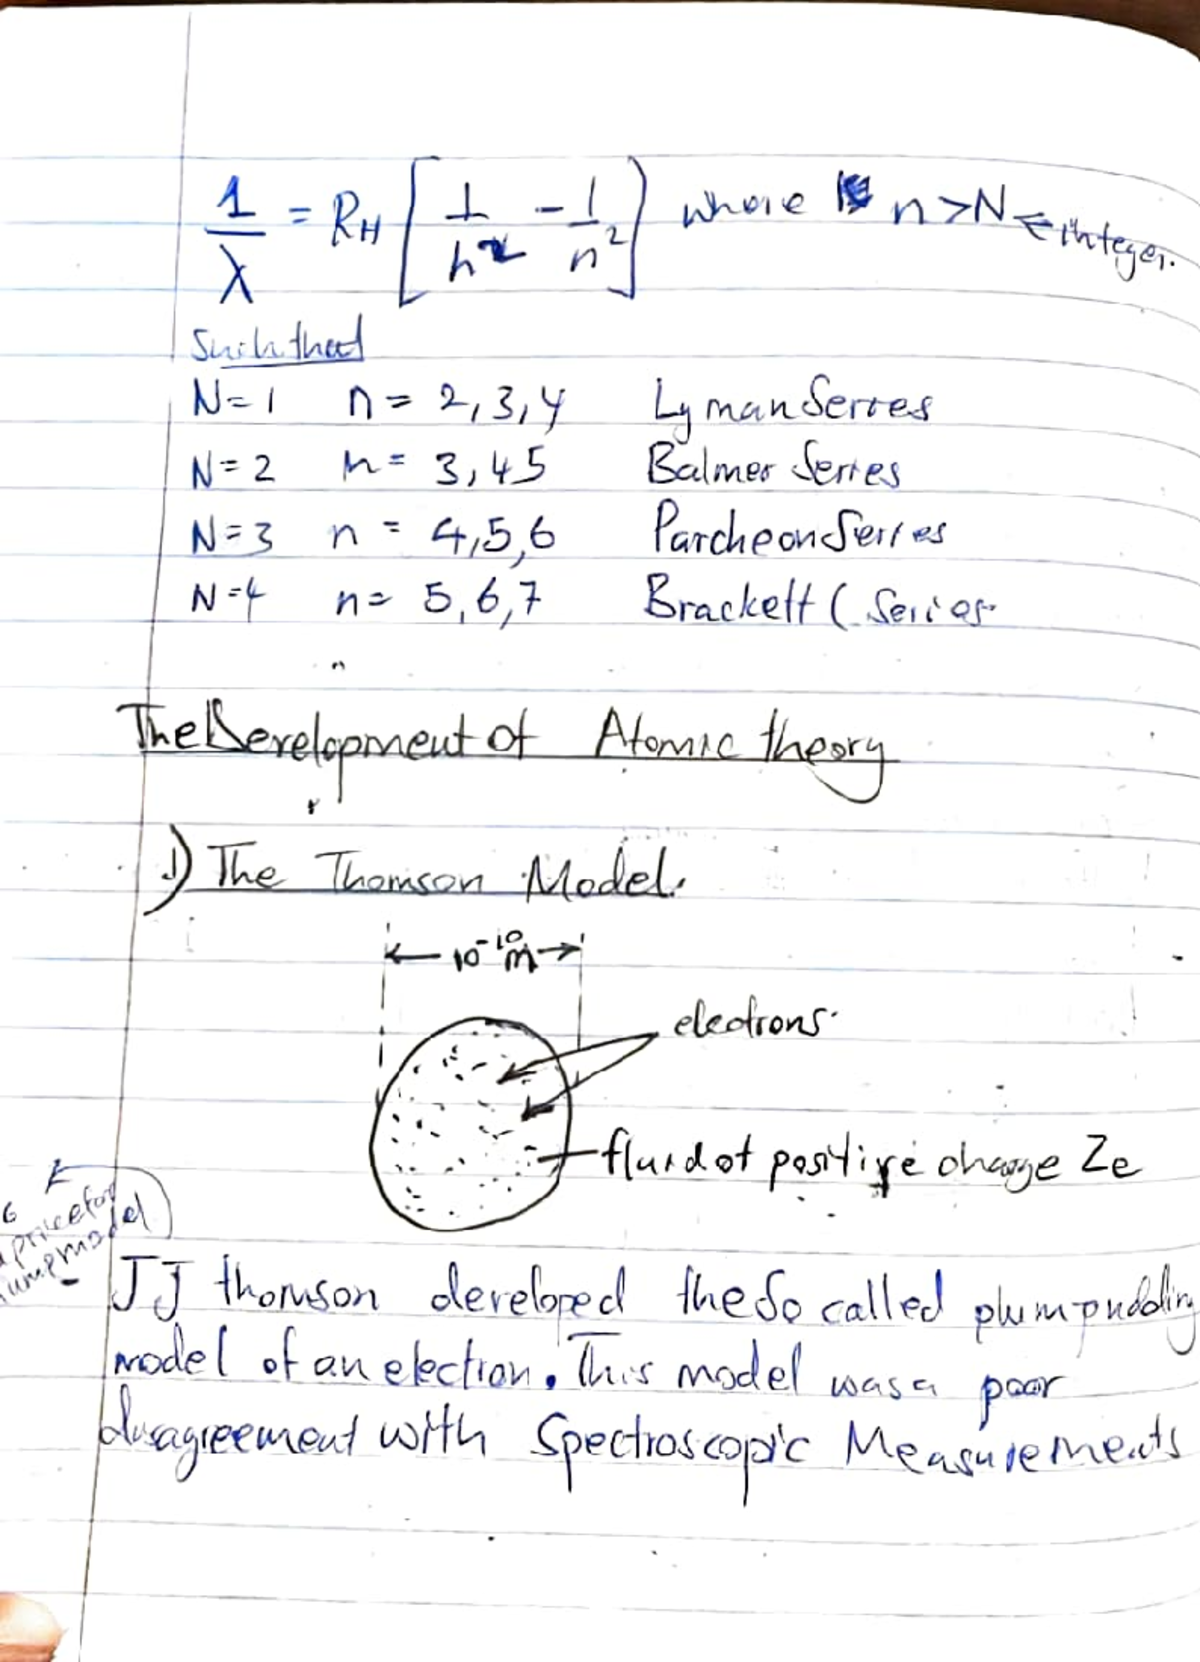 1/λ = RH [ 1/h² - 1/n² ] where n > N ← integer.
Such that
N=1 n = 2,3,4 Lyman Series
N=2 n = 3,45 Balmer Series
N=3 n = 4,5,6 Parcheon Series
N=4 n= 5,6,7 Brackett ( Series
The Development of Atomic theory
1) The Thomson Model.
← 10⁻¹⁰m →
electrons
fluid of positive charge Ze
model
JJ thomson developed the So called plumpudding
model of an electron. This model was a poor
disagreement with Spectroscopic Measurements